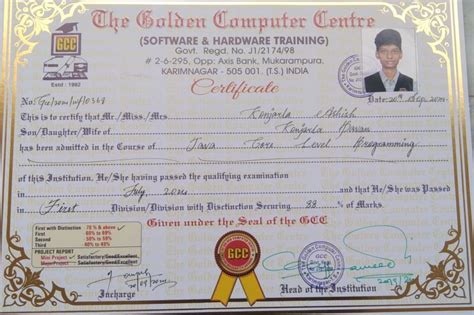 The Golden Computer Centre
(SOFTWARE & HARDWARE TRAINING)
Govt. Regd. No. J1/2174/98
# 2-6-295, Opp: Axis Bank, Mukarampura,
KARIMNAGAR - 505 001. (T.S.) INDIA
GCC
Estd - 1992
Certificate
No.
Date
This is to certify that Mr./Miss./Mrs. Konjarla
Son/Daughter/Wife of Konjarla Pavan
has been admitted in the Course of Java Core Level Programming
of this Institution. He/She having passed the qualifying examination
in July and that He/She was Passed
in First Division/Division with Distinction Securing 88 % of Marks
Given under the Seal of the GCC
First with Distinction 75 % & above
First 60% to 69%
Second 50% to 59%
Third 40% to 49%
PROJECT REPORT
Mini Project Satisfactory/Good/Excellent.
Major Project Satisfactory/Good/Excellent
GCC
Incharge
Head of the Institution